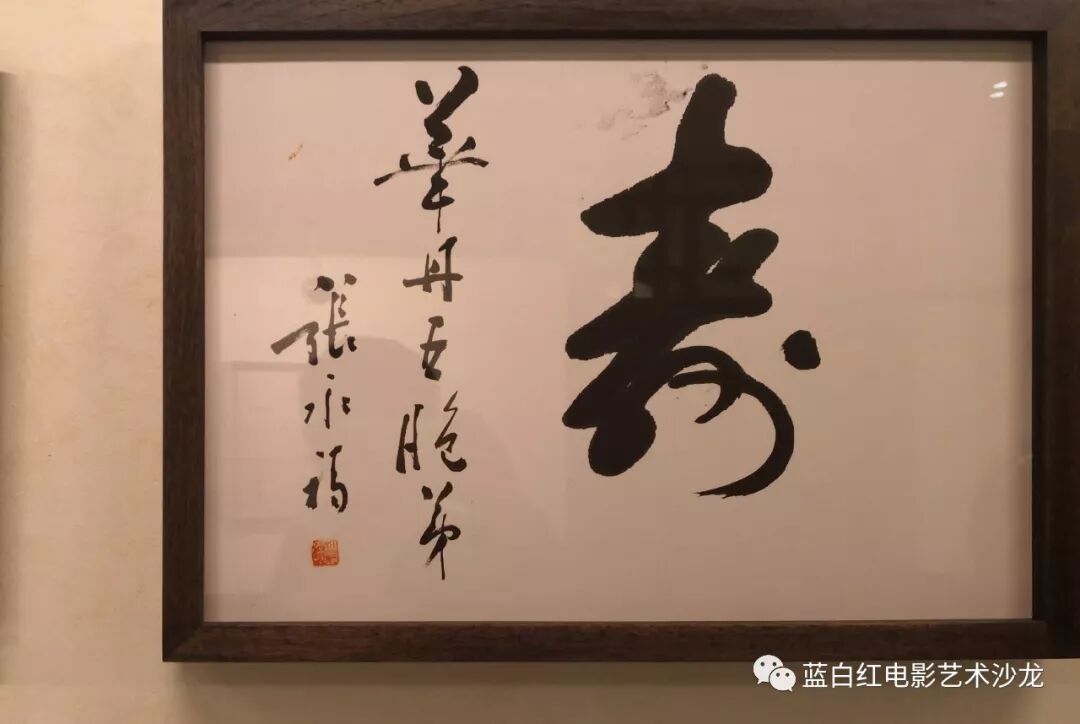 寿
華丹吾胞弟
張永福
蓝白红电影艺术沙龙